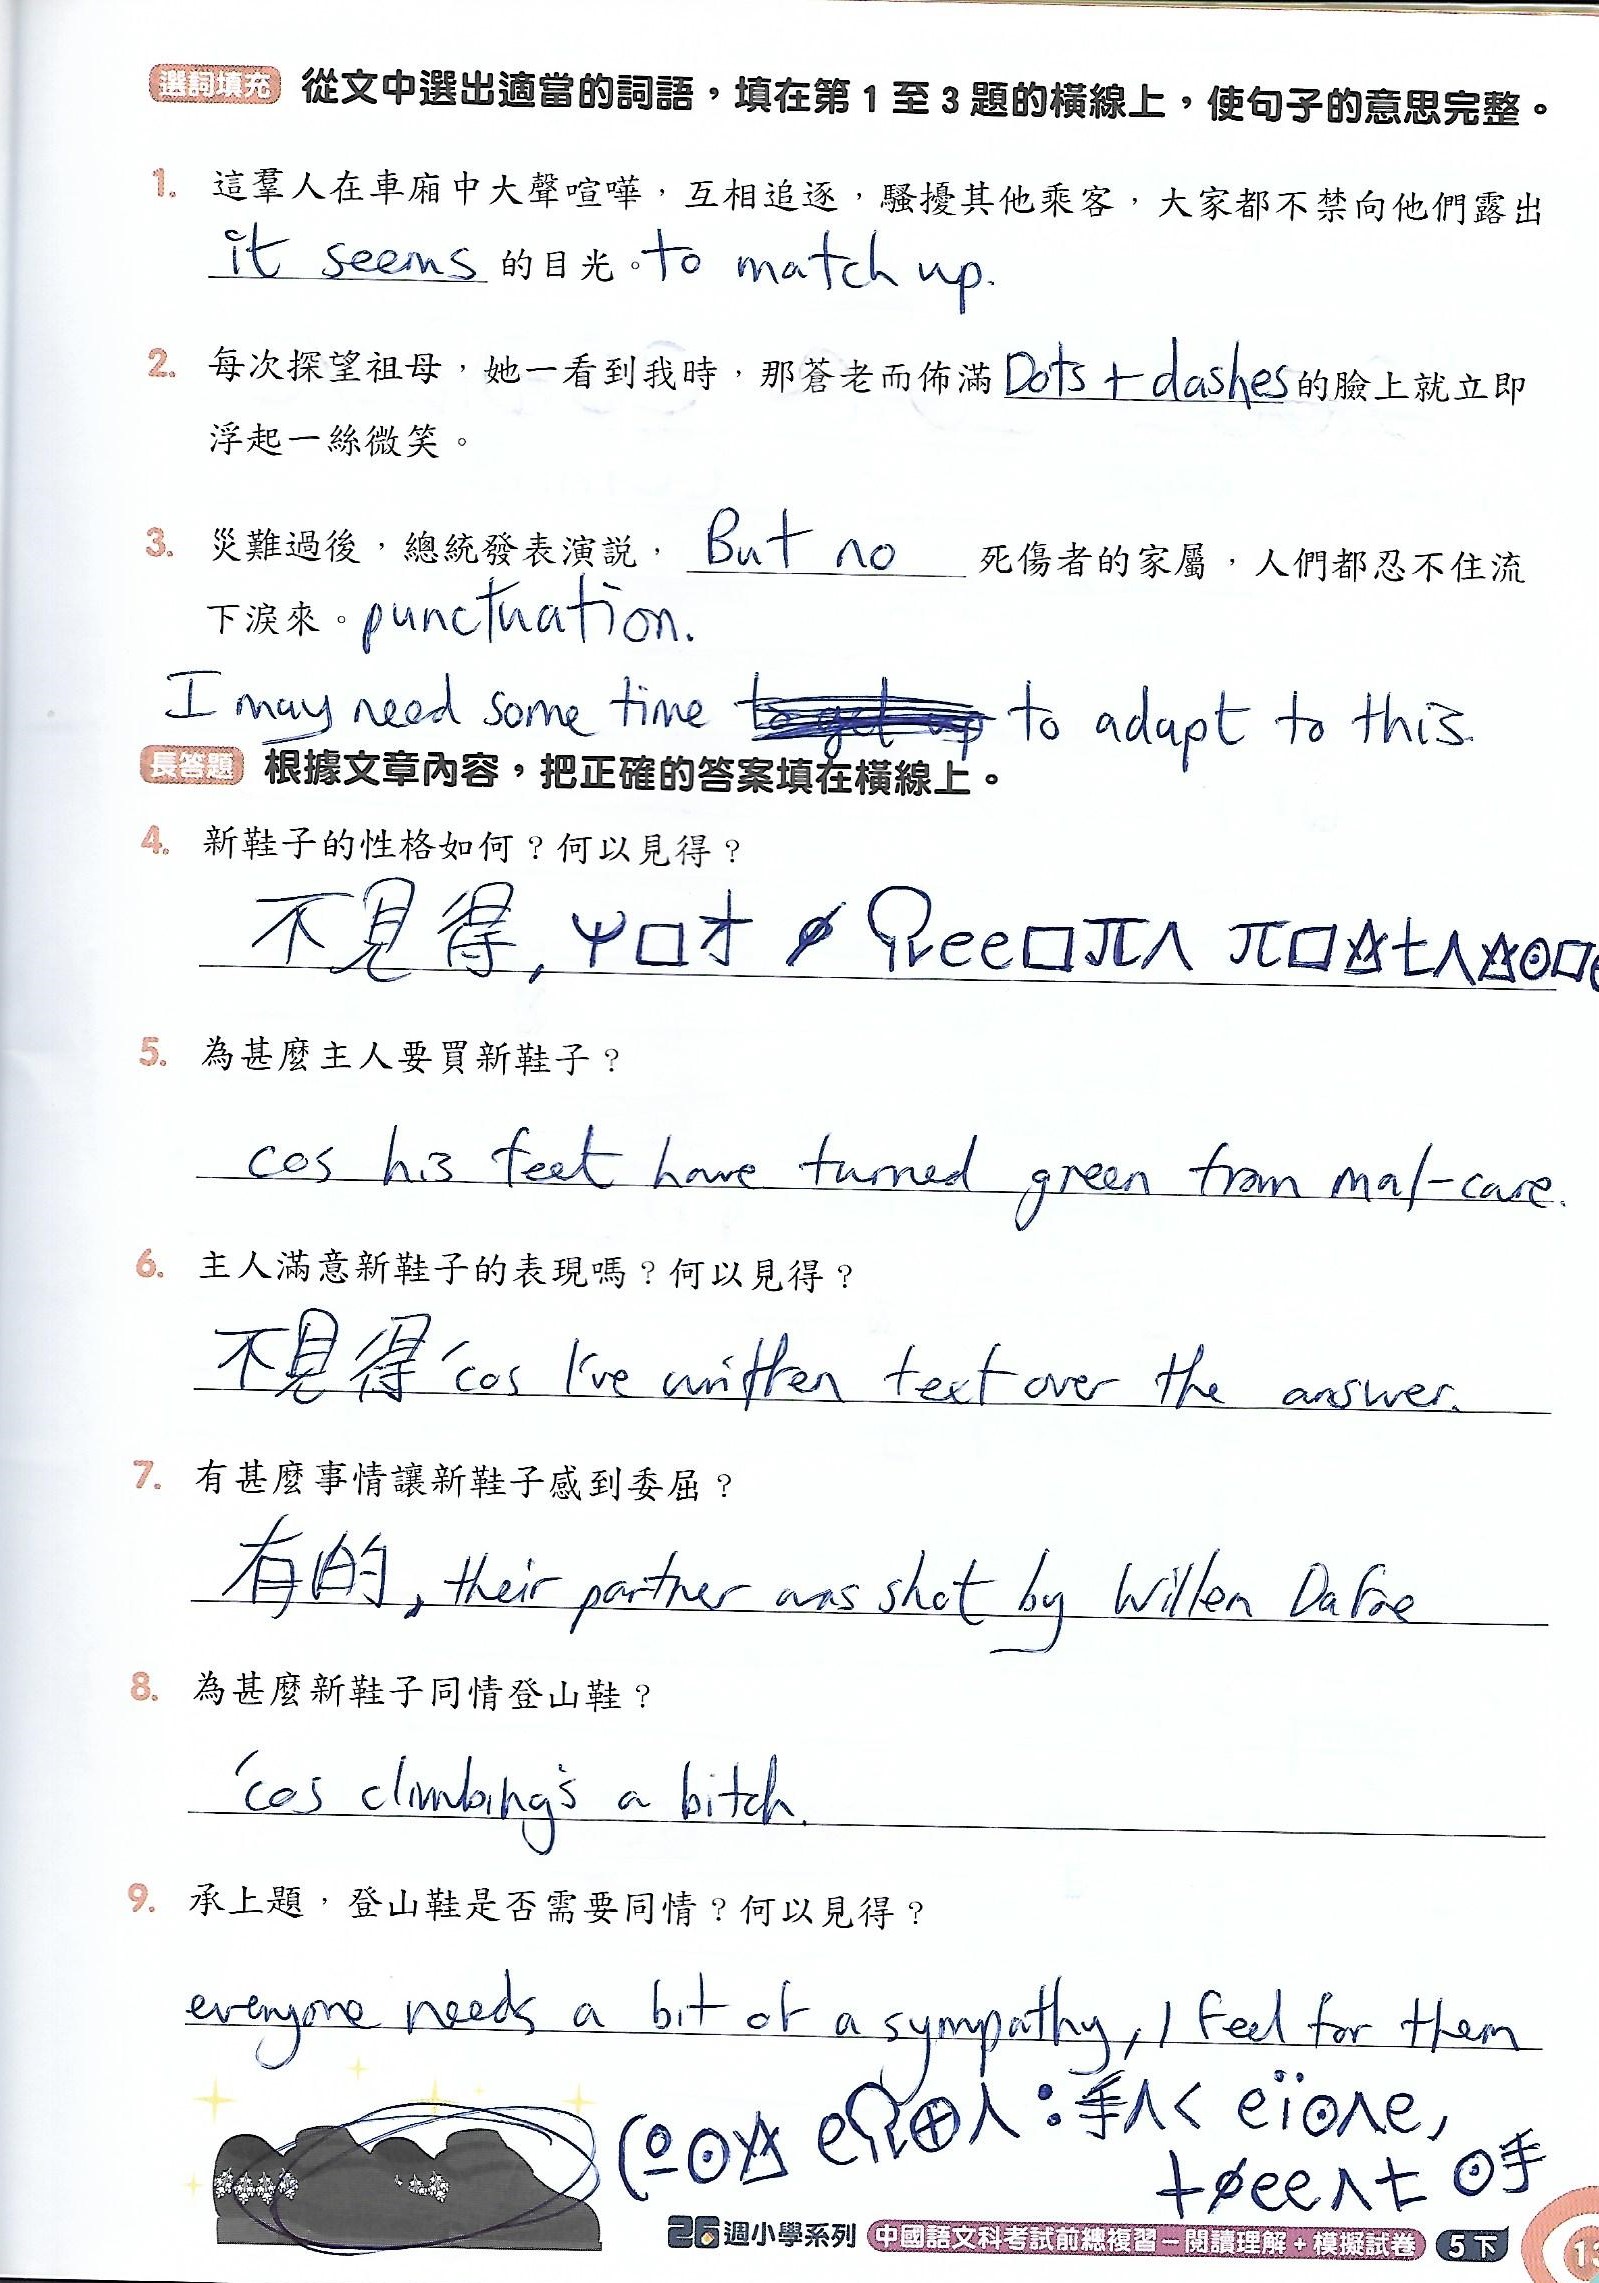 選詞填充 從文中選出適當的詞語，填在第1至3題的橫線上，使句子的意思完整。
1. 這羣人在車廂中大聲喧嘩，互相追逐，騷擾其他乘客，大家都不禁向他們露出
it seems 的目光。to match up.
2. 每次探望祖母，她一看到我時，那蒼老而佈滿 Dots + dashes 的臉上就立即
浮起一絲微笑。
3. 災難過後，總統發表演説， But no 死傷者的家屬，人們都忍不住流
下淚來。punctuation.
I may need some time to get up to adapt to this.
長答題 根據文章內容，把正確的答案填在橫線上。
4. 新鞋子的性格如何？何以見得？
不見得,
5. 為甚麼主人要買新鞋子？
cos his feet have turned green from mal-care.
6. 主人滿意新鞋子的表現嗎？何以見得？
不見得 'cos I've written text over the answer.
7. 有甚麼事情讓新鞋子感到委屈？
有的, their partner was shot by Willem Dafoe
8. 為甚麼新鞋子同情登山鞋？
'cos climbing's a bitch.
9. 承上題，登山鞋是否需要同情？何以見得？
everyone needs a bit of a sympathy, I feel for them
26週小學系列 中國語文科考試前總複習－閱讀理解＋模擬試卷 5下